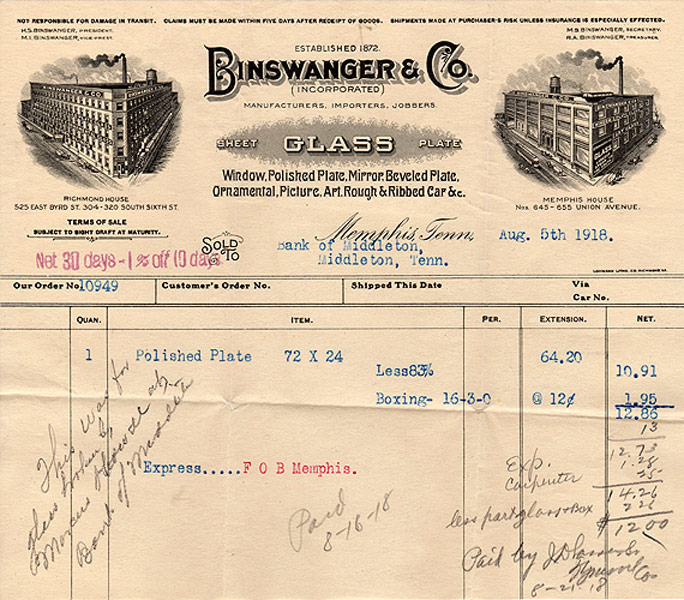 NOT RESPONSIBLE FOR DAMAGE IN TRANSIT. CLAIMS MUST BE MADE WITHIN FIVE DAYS AFTER RECEIPT OF GOODS. SHIPMENTS MADE AT PURCHASER'S RISK UNLESS INSURANCE IS ESPECIALLY EFFECTED.
H.S. BINSWANGER, PRESIDENT.
M.I. BINSWANGER, VICE-PREST.
M.S. BINSWANGER, SECRETARY.
R.A. BINSWANGER, TREASURER.
ESTABLISHED 1872.
BINSWANGER & CO.
(INCORPORATED)
MANUFACTURERS, IMPORTERS, JOBBERS.
SHEET GLASS PLATE
WINDOW, POLISHED PLATE, MIRROR, BEVELED PLATE,
ORNAMENTAL, PICTURE, ART, ROUGH & RIBBED CAR &c.
BINSWANGER & CO.
RICHMOND HOUSE
525 EAST BYRD ST. 304-320 SOUTH SIXTH ST.
GLASS
MEMPHIS HOUSE
Nos. 645-655 UNION AVENUE.
TERMS OF SALE
SUBJECT TO SIGHT DRAFT AT MATURITY.
Net 30 days - 1% off 10 days
SOLD TO
Memphis, Tenn., Aug. 5th 1918.
Bank of Middleton,
Middleton, Tenn.
Our Order No 10949 Customer's Order No. Shipped This Date Via
Car No.
QUAN. ITEM. PER. EXTENSION. NET.
1 Polished Plate 72 X 24 64.20
Less 83% 10.91
Boxing- 16-3-0 @ 12¢ 1.95
12.86
13
12.73
Express.....F O B Memphis.
Exp. 1.28
Carpenter 25
14.26
less part glass & Box 2 26
$ 12 00
Paid
8-16-18
Paid by
8-21-18
This was for
glass broken by
Bank of Middleton